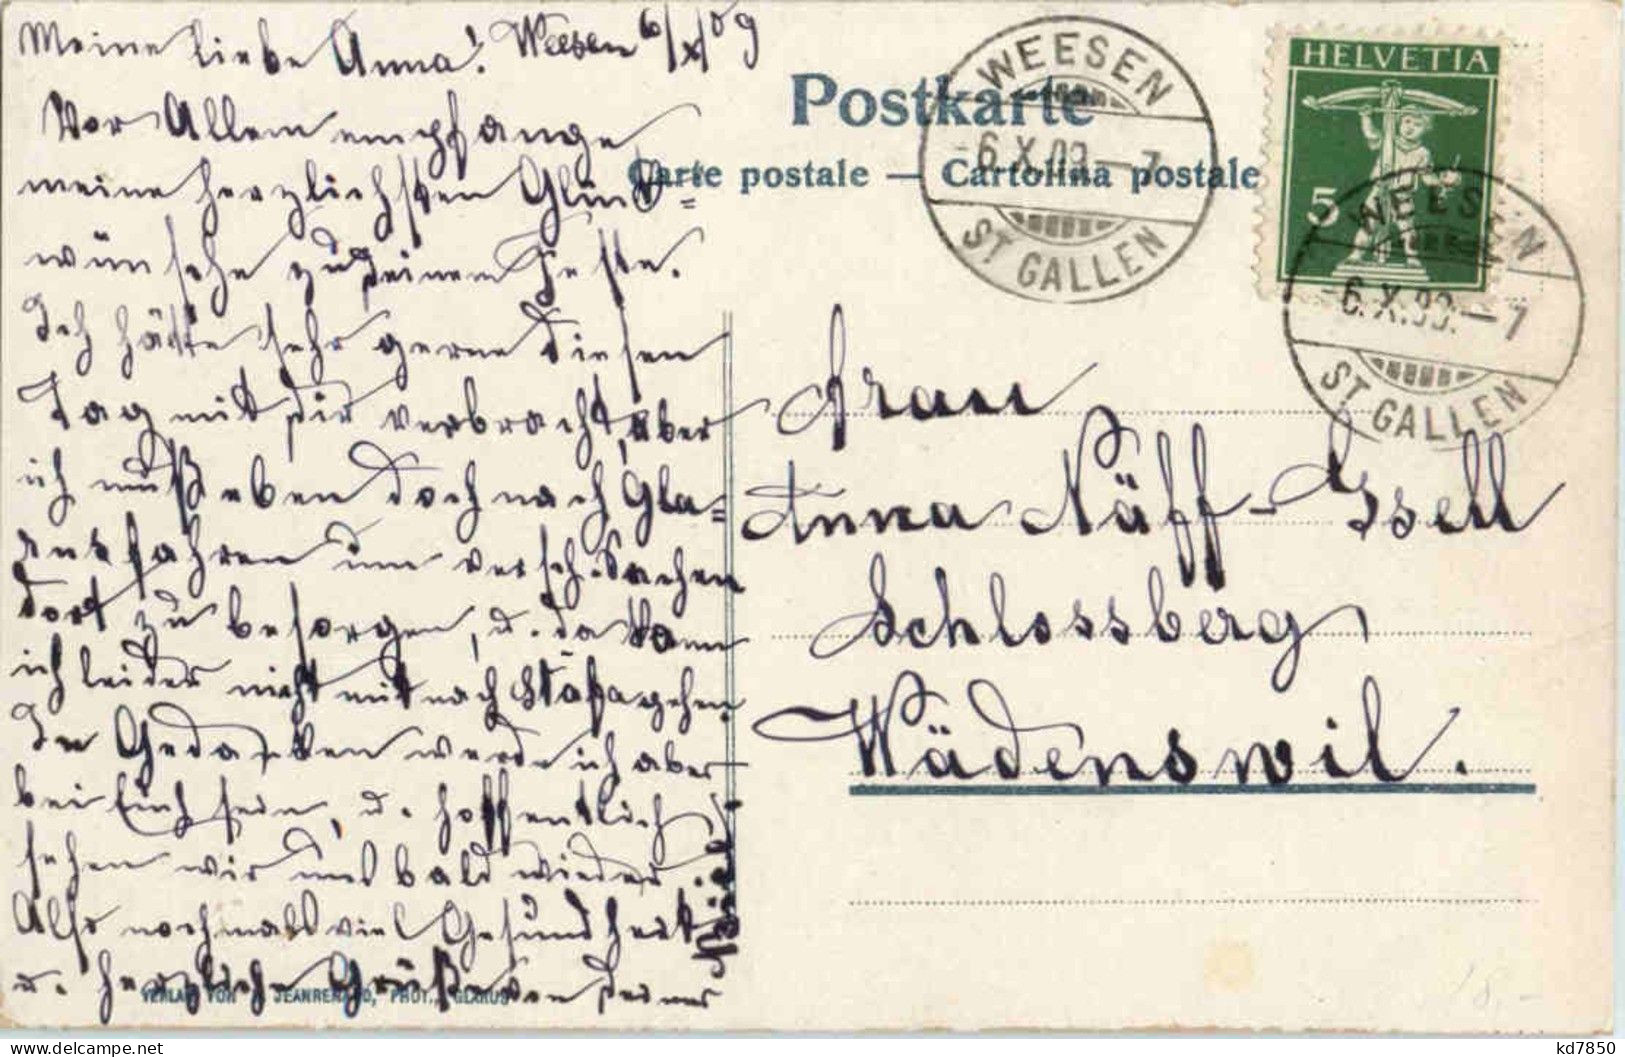 Meine liebe Anna! Weesen 6/X/09
Vor Allem empfange
meine herzlichsten Glück=
wünsche zu deinem Feste.
Ich hätte sehr gerne diesen
Tag mit dir verbracht, aber
ich muß eben doch nach Gla=
rus fahren um versch. Sachen
dort zu besorgen, u. da kann
ich leider nicht mit nach Stäfa gehen.
In Gedanken werde ich aber
bei Euch sein, u. hoffentlich
sehen wir uns bald wieder
Also nochmals viel Gesundheit
u. herzliche Grüße von deiner
Postkarte
Carte postale — Cartolina postale
WEESEN
6.X.09.—7
ST GALLEN
HELVETIA
5
WEESEN
6.X.09.—7
ST GALLEN
Frau
Anna Näff-Gsell
Schlossberg
Wädenswil.
VERLAG VON JEANRENAUD, PHOT., GLARUS
18.-
kd7850